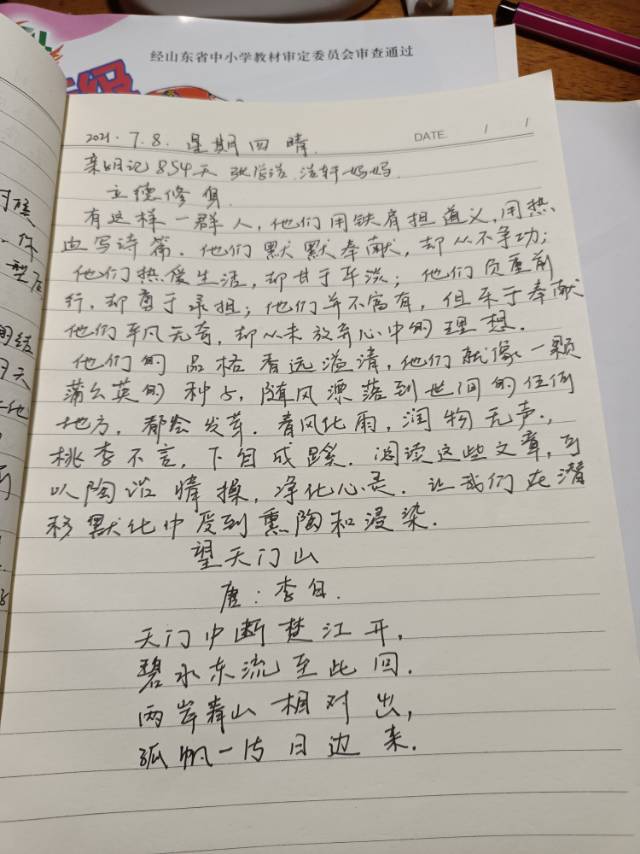 经山东省中小学教材审定委员会审查通过
DATE / /
2021.7.8. 星期四 晴
亲明记854天 张浩 浩轩妈妈
立德修身
有这样一群人,他们用铁肩担道义,用热
血写诗篇.他们默默奉献,却从不争功;
他们热爱生活,却甘于平淡;他们负重前
行,却勇于承担;他们并不富有,但乐于奉献
他们平凡无奇,却从未放弃心中的理想.
他们的品格香远溢清,他们就像一颗
蒲公英的种子,随风漂落到世间的任何
地方,都会发芽.春风化雨,润物无声.,
桃李不言,下自成蹊.阅读这些文章,可
以陶冶情操,净化心灵.让我们在潜
移默化中受到熏陶和浸染.
望天门山
唐:李白.
天门中断楚江开,
碧水东流至此回.
两岸青山相对出,
孤帆一片日边来.